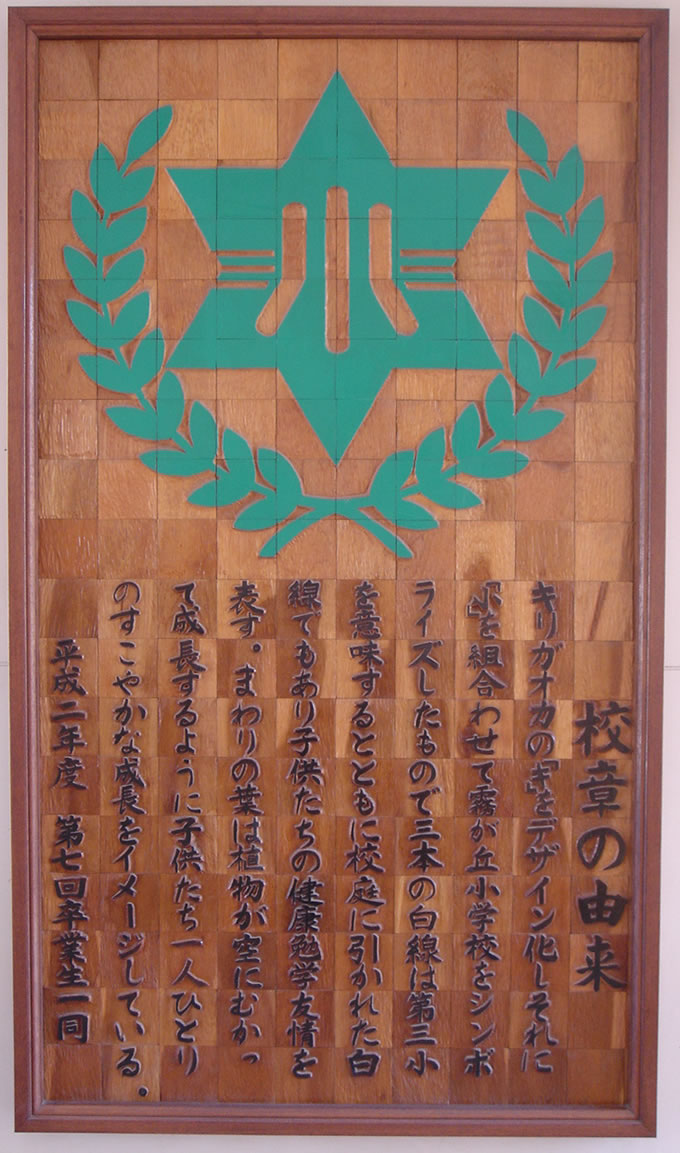 小
校章の由来
キリガオカの「キ」をデザイン化しそれに
「小」を組合わせて霧が丘小学校をシンボ
ライズしたもので三本の白線は第三小
を意味するとともに校庭に引かれた白
線でもあり子供たちの健康勉学友情を
表す。まわりの葉は植物が空にむかっ
て成長するように子供たち一人ひとり
のすこやかな成長をイメージしている。
平成二年度 第七回卒業生一同